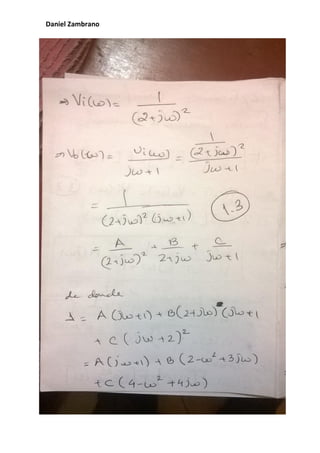 Daniel Zambrano
⇒ Vi(ω) = 1 / (2+jω)²
⇒ Vo(ω) = Vi(ω) / (jω+1) = (1 / (2+jω)²) / (jω+1)
= 1 / ((2+jω)² (jω+1))
1.3
= A / (2+jω)² + B / (2+jω) + C / (jω+1)
de donde
1 = A (jω+1) + B(2+jω) (jω+1
+ C (jω+2)²
= A(jω+1) + B (2-ω²+3jω)
+ C (4-ω²+4jω)